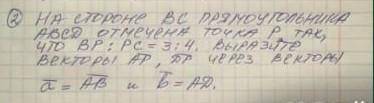 ② НА СТОРОНЕ ВС ПРЯМОУГОЛЬНИКА
АВСД ОТМЕЧЕНА ТОЧКА Р ТАК,
ЧТО ВР : РС = 3 : 4. ВЫРАЗИТЕ
ВЕКТОРЫ АР, ДР ЧЕРЕЗ ВЕКТОРЫ
a̅ = A̅B̅ И b̅ = АД.